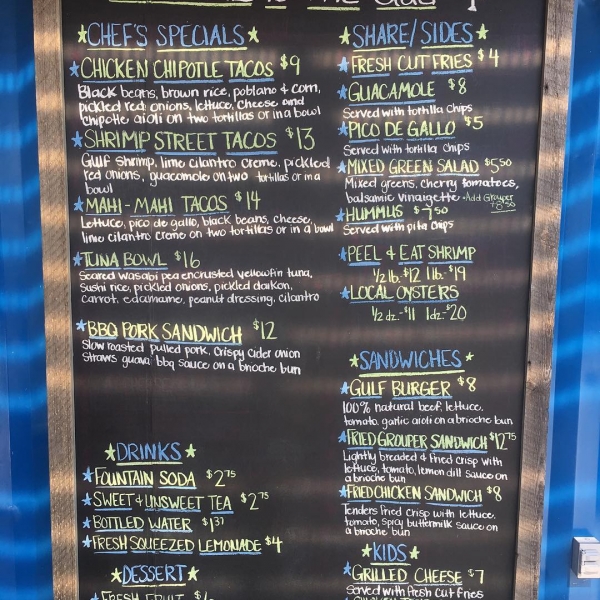 CHEF'S SPECIALS
CHICKEN CHIPOTLE TACOS $9
Black beans, brown rice, poblano & corn,
pickled red onions, lettuce, cheese and
chipotle aioli on two tortillas or in a bowl
SHRIMP STREET TACOS $13
Gulf shrimp, lime cilantro creme, pickled
red onions, guacamole on two tortillas or in a
bowl
MAHI-MAHI TACOS $14
Lettuce, pico de gallo, black beans, cheese,
lime cilantro creme on two tortillas or in a bowl
TUNA BOWL $16
Seared wasabi pea encrusted yellowfin tuna,
Sushi rice, pickled onions, pickled daikon,
carrot, edamame, peanut dressing, cilantro
BBQ PORK SANDWICH $12
Slow roasted pulled pork, crispy cider onion
straws guava bbq sauce on a brioche bun
DRINKS
FOUNTAIN SODA $2.75
SWEET & UNSWEET TEA $2.75
BOTTLED WATER
FRESH SQUEEZED LEMONADE $4
DESSERT
FRESH FRUIT
SHARE/SIDES
FRESH CUT FRIES $4
GUACAMOLE $8
Served with tortilla chips
PICO DE GALLO $5
Served with tortilla chips
MIXED GREEN SALAD $5.50
Mixed greens, cherry tomatoes,
balsamic vinaigrette • Add Grouper
HUMMUS $7.50
Served with pita chips
PEEL & EAT SHRIMP
1/2 lb. $12 1 lb. $19
LOCAL OYSTERS
1/2 dz.-$11 1dz-$20
SANDWICHES
GULF BURGER $8
100% natural beef, lettuce,
tomato, garlic aioli on a brioche bun
FRIED GROUPER SANDWICH $12.75
Lightly breaded & fried crisp with
lettuce, tomato, lemon dill sauce on
a brioche bun
FRIED CHICKEN SANDWICH $8
Tenders fried crisp with lettuce,
tomato, spicy buttermilk sauce on
a brioche bun
KIDS
GRILLED CHEESE $7
Served with fresh cut fries